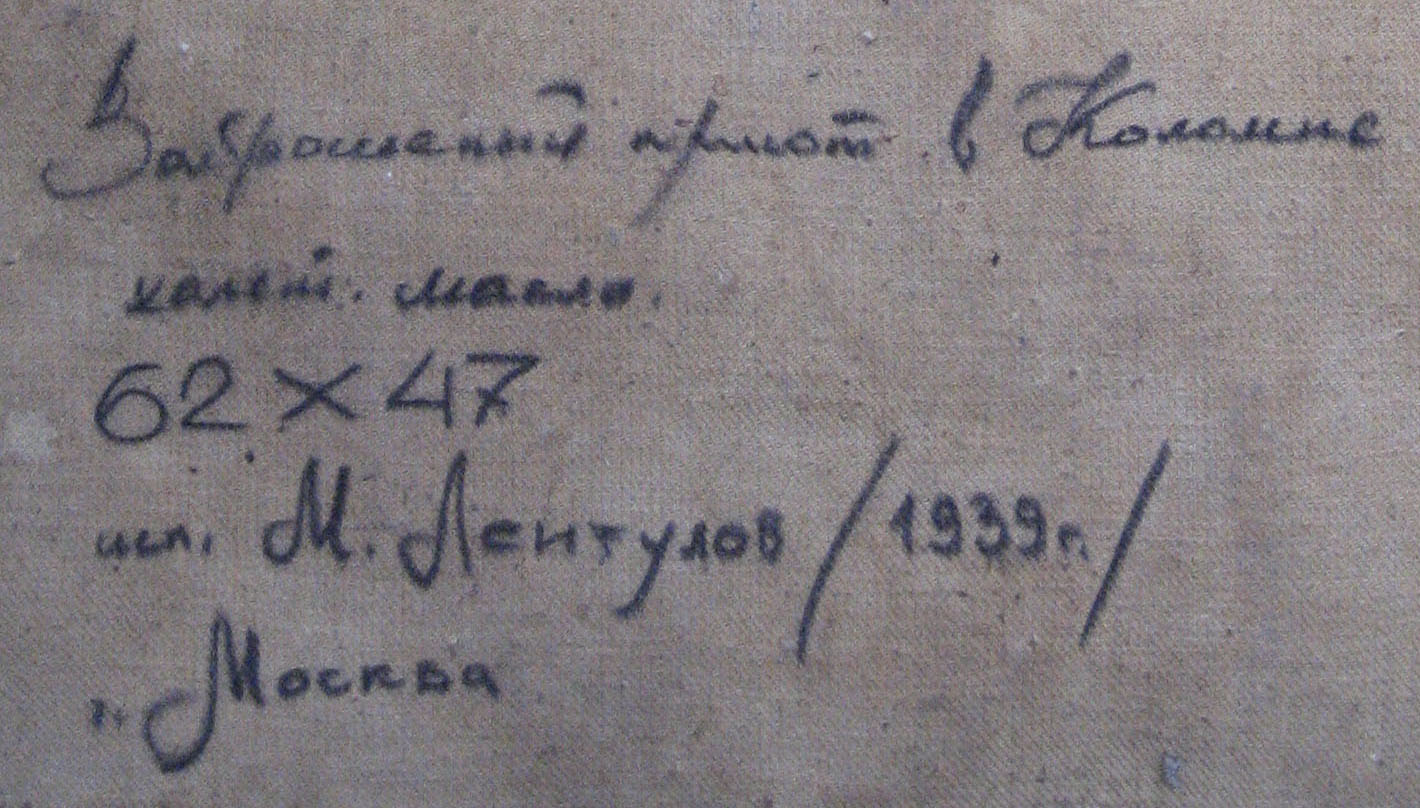 Заброшенный приют в Коломне
холст. масло.
62 × 47
исп. М. Лентулов /1939г./
г. Москва